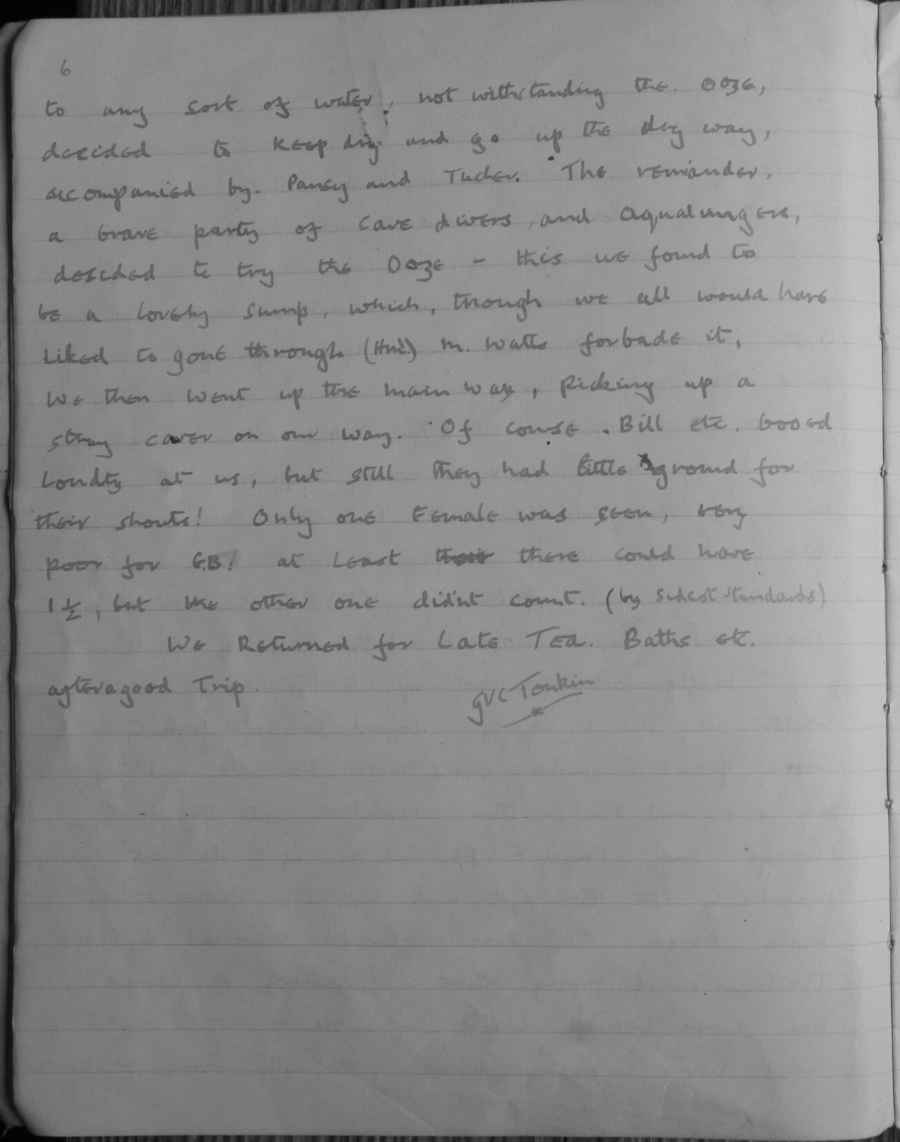 6
to any sort of water, not withstanding the Ooze,
decided to keep dry and go up the dry way,
accompanied by Pansy and Tucker. The remainder,
a brave party of cave divers and aqualungers,
decided to try the Ooze - this we found to
be a lovely sump, which, though we all would have
liked to gone through (Hic) M. Watts forbade it,
We then went up the main way, picking up a
stray caver on our way. Of course. Bill etc. booed
loudly at us, but still they had little ground for
their shouts! Only one Female was seen, very
poor for G.B! at least there could have
1½, but the other one didnt count. (by standards)
We Returned for Late Tea. Baths etc.
after a good Trip.
GVC Tonkin